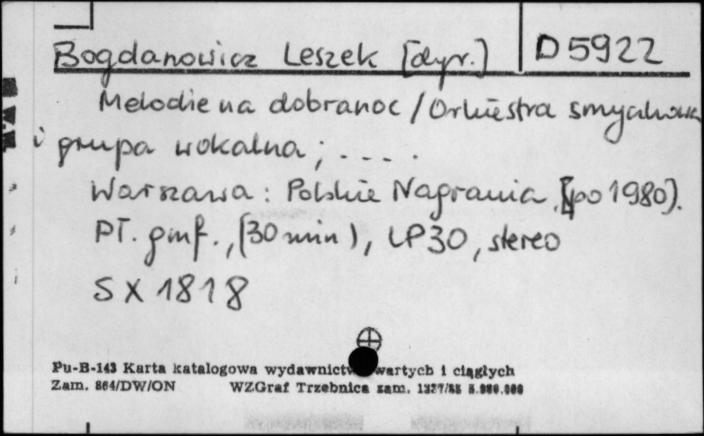 Bogdanowicz Leszek [dyr.] D 5922
Melodie na dobranoc / Orkiestra smyczkowa
i grupa wokalna ; . . . .
Warszawa : Polskie Nagrania, [po 1980].
PŁ. gmf., (30 min), LP30, stereo
SX 1818
Pu-B-143 Karta katalogowa wydawnictw zwartych i ciągłych
Zam. 864/DW/ON WZGraf Trzebnica zam.